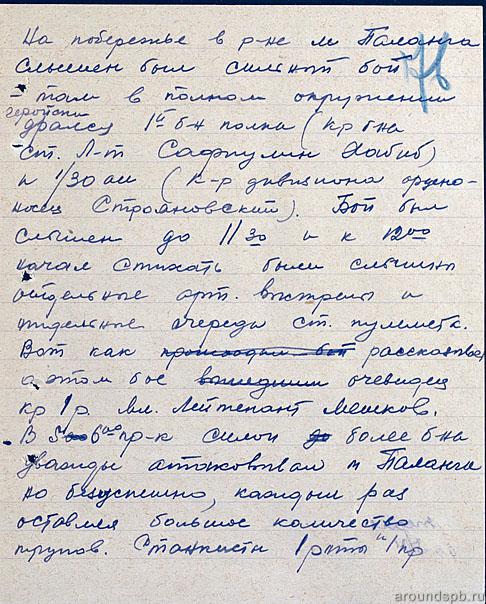 На побережье в р-не м Паланга
слышен был сильный бой
- там в полном окружении
геройски
дрался 1й б-н полка (кр б-на
ст. Л-т Сафиулин Хабиб)
и 1/30 ап (к-р дивизиона ордено-
носец Строяновский). Бой был
слышен до 11 30 и к 12 00
начал стихать были слышны
отдельные арт. выстрелы и
отдельные очереди ст. пулеметк.
Вот как происходил бой рассказывает
о этом бое очевидец
кр 1 р. мл. лейтенант Мешков.
В 6 00 пр-к силой до более б-на
дважды атаковал м Паланга
но безуспешно, каждый раз
оставлял большое количество
трупов. Станкисты 1 роты
aroundspb.ru